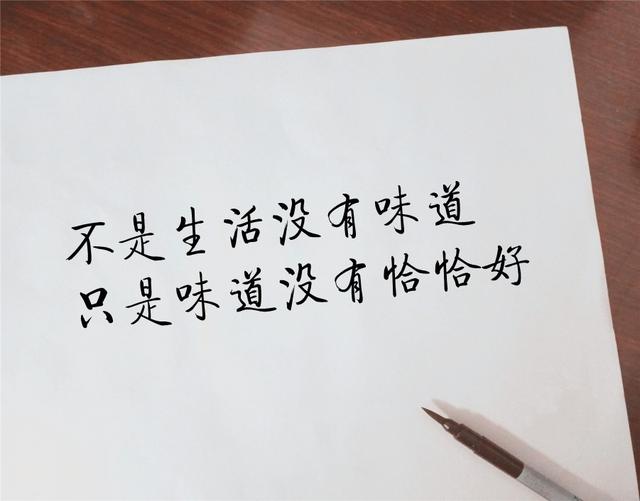 不是生活没有味道
只是味道没有恰恰好